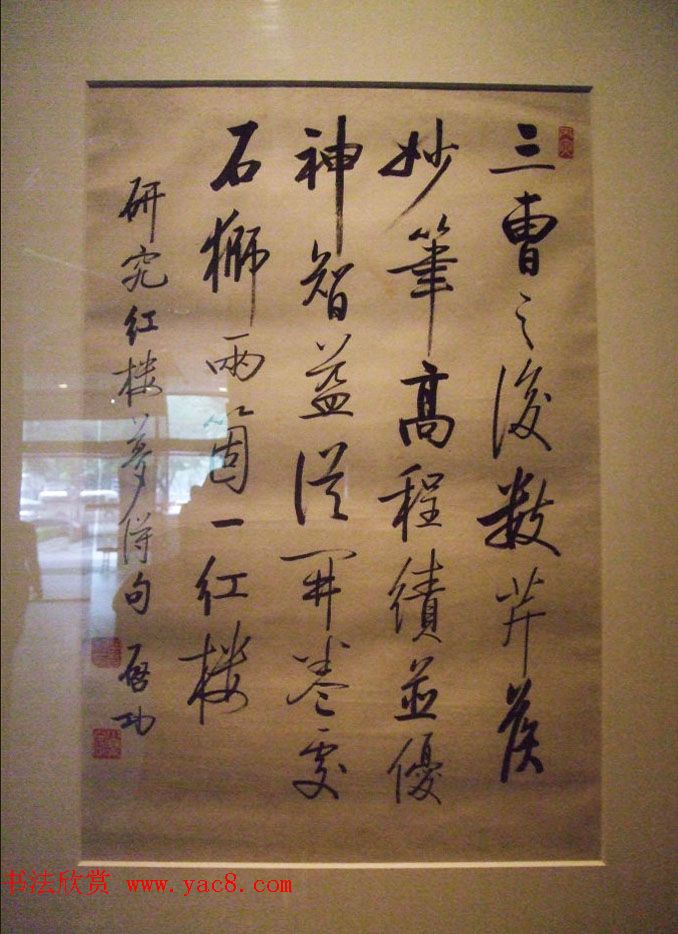 三曹之後數芹侯
妙筆高程績並優
神智益從開卷處
石獅兩箇一紅樓
研究红楼夢得句 啓功
书法欣赏 www.yac8.com